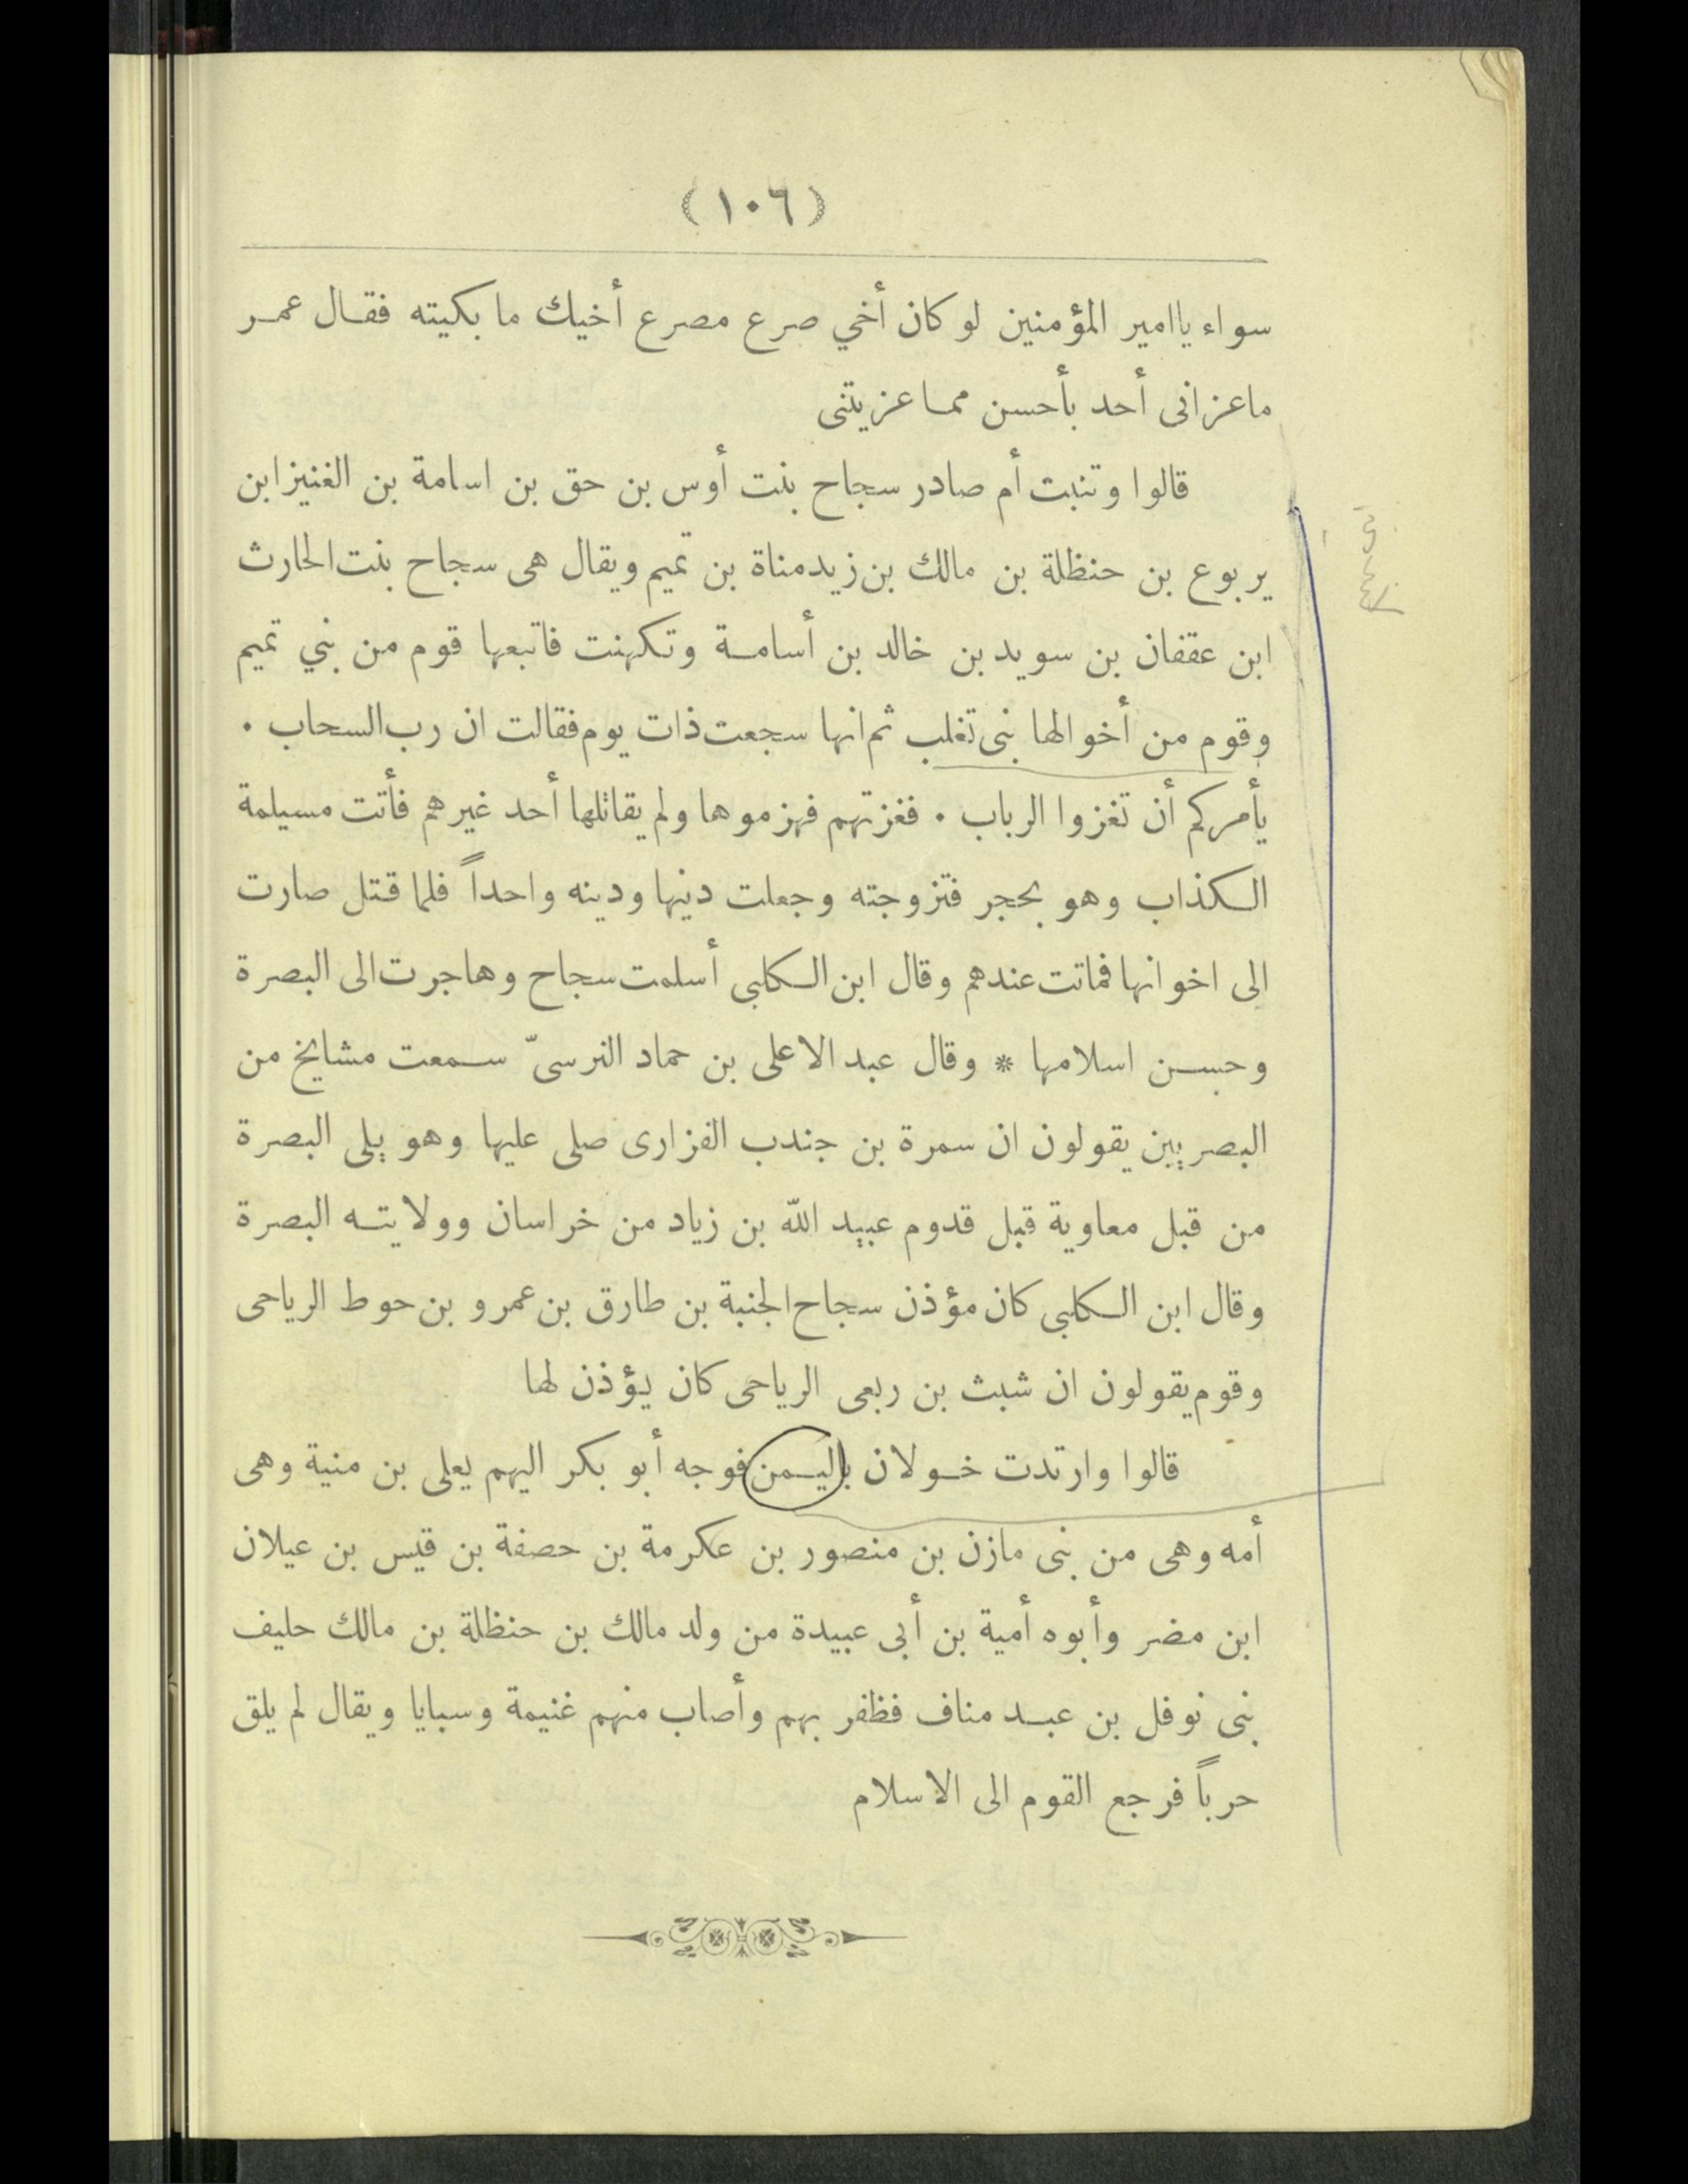 (١٠٦)
سواء ياامير المؤمنين لو كان أخي صرع مصرع أخيك ما بكيته فقال عمر
ماعزانى أحد بأحسن مما عزيتنى
قالوا وتنبت أم صادر سجاح بنت أوس بن حق بن اسامة بن الغنيز ابن
يربوع بن حنظلة بن مالك بن زيد مناة بن تميم ويقال هى سجاح بنت الحارث
ابن عقفان بن سويد بن خالد بن أسامة وتكهنت فاتبعها قوم من بني تميم
وقوم من أخوالها بنى تغلب ثم انها سجعت ذات يوم فقالت ان رب السحاب .
يأمركم أن تغزوا الرباب . فغزتهم فهزموها ولم يقاتلها أحد غيرهم فأتت مسيلمة
الكذاب وهو بحجر فتزوجته وجعلت دينها ودينه واحداً فلما قتل صارت
الى اخوانها فماتت عندهم وقال ابن الكلبى أسلمت سجاح وهاجرت الى البصرة
وحسن اسلامها * وقال عبد الاعلى بن حماد النرسىّ سمعت مشايخ من
البصريين يقولون ان سمرة بن جندب الفزارى صلى عليها وهو يلى البصرة
من قبل معاوية قبل قدوم عبيد الله بن زياد من خراسان وولايته البصرة
وقال ابن الكلبى كان مؤذن سجاح الجنبة بن طارق بن عمرو بن حوط الرياحى
وقوم يقولون ان شبث بن ربعى الرياحى كان يؤذن لها
قالوا وارتدت خولان باليمن فوجه أبو بكر اليهم يعلى بن منية وهى
أمه وهى من بنى مازن بن منصور بن عكرمة بن حصفة بن قيس بن عيلان
ابن مضر وأبوه أمية بن أبى عبيدة من ولد مالك بن حنظلة بن مالك حليف
بنى نوفل بن عبد مناف فظفر بهم وأصاب منهم غنيمة وسبايا ويقال لم يلق
حرباً فرجع القوم الى الاسلام